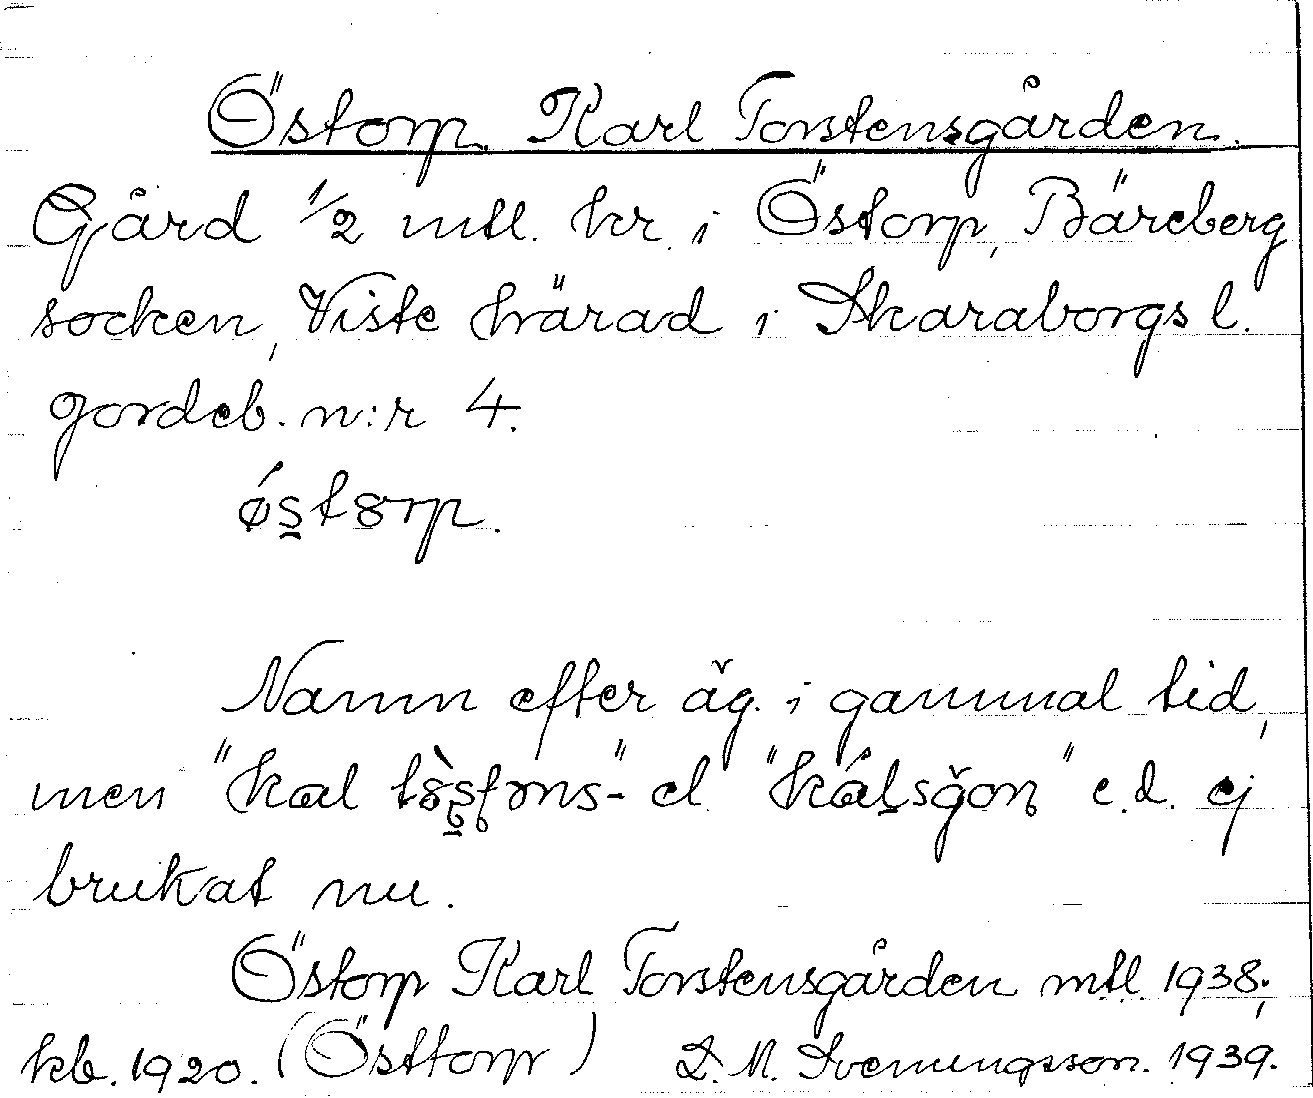 Östorp, Karl Torstensgården.
Gård 1/2 mtl. kr. i Östorp, Bäreberg
socken, Viste härad i Skaraborgs l.
Jordeb. n:r 4.
ǿs̱tȣrp.
Namn efter äg. i gammal tid,
men "kal" el "kálsǧoɲ" e.d. ej
brukat nu.
Östorp Karl Torstensgården mtl. 1938;
kb. 1920. (Östtorp) D. M. Svenungsson. 1939.